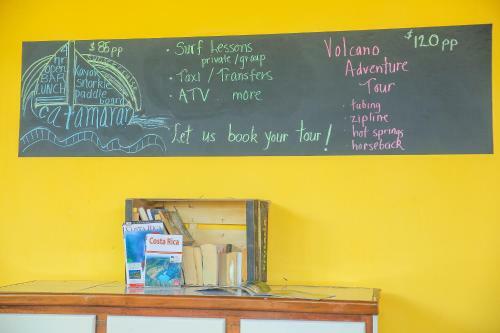 $85 pp
4 hr
open
BAR
LUNCH
Kayak
Snorkle
paddle
board
catamaran
· Surf Lessons
private/group
· Taxi / Transfers
· ATV . more
Let us book your tour!
Volcano
Adventure
Tour
$120 pp
· tubing
· zipline
· hot springs
horseback
COSTA RICA
Costa Rica